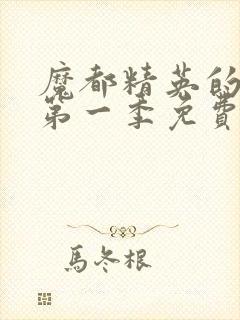 魔都精英的
第一季免費
馬冬根